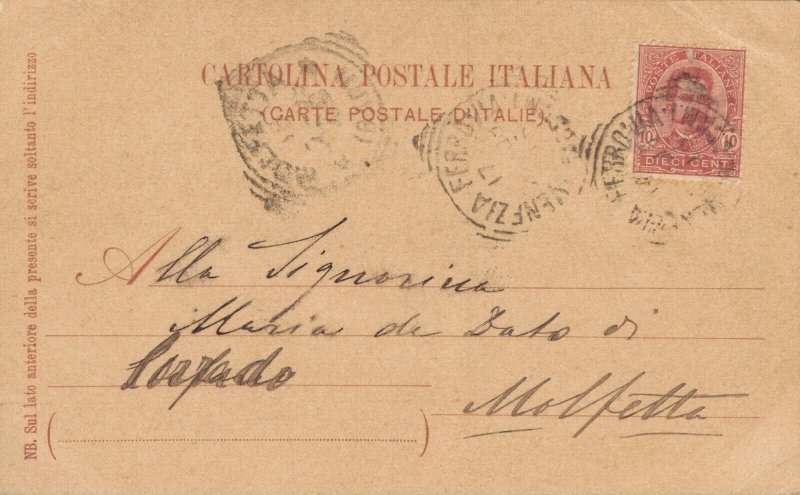 CARTOLINA POSTALE ITALIANA
(CARTE POSTALE D'ITALIE)
POSTE ITALIANE
10 10
DIECI CENT
VENEZIA FERROVIA
FERROVIA
NB. Sul lato anteriore della presente si scrive soltanto l'indirizzo
Alla Signorina
Maria de Dato di
Corrado
Molfetta